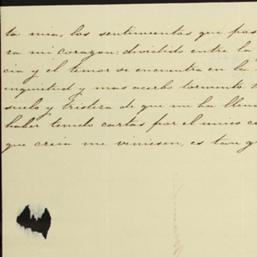 ta mia, los sentimientos que pas
ra mi corazon dividido entre la
cia y el temor se encuentra en la
inquietud y mas acerbo tormento
suelo y tristeza de que me ha llen
haber tenido cartas por el unico c
que creia me viniesen, es tan g